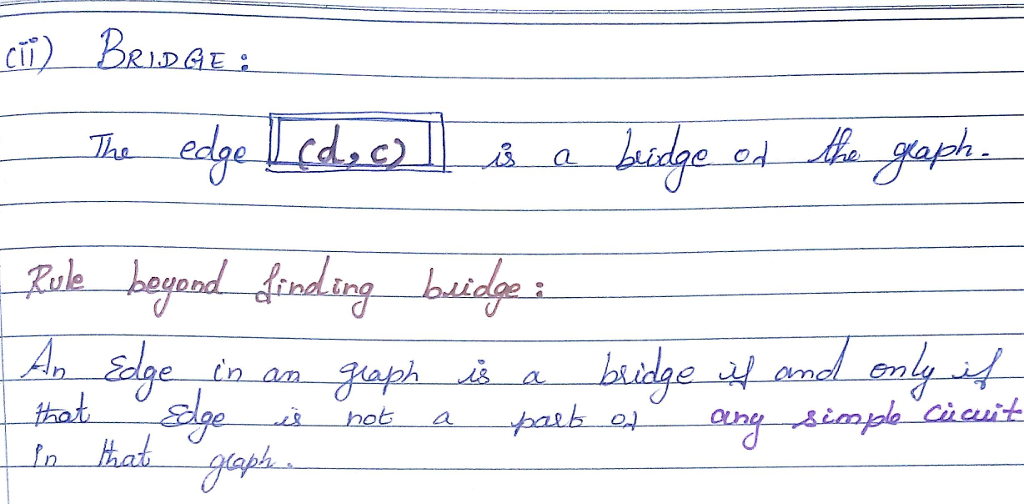 (ii) BRIDGE:
The edge (d,c) is a bridge of the graph.
Rule beyond finding bridge:
An Edge in an graph is a bridge if and only if
that Edge is not a part of any simple circuit
In that graph.